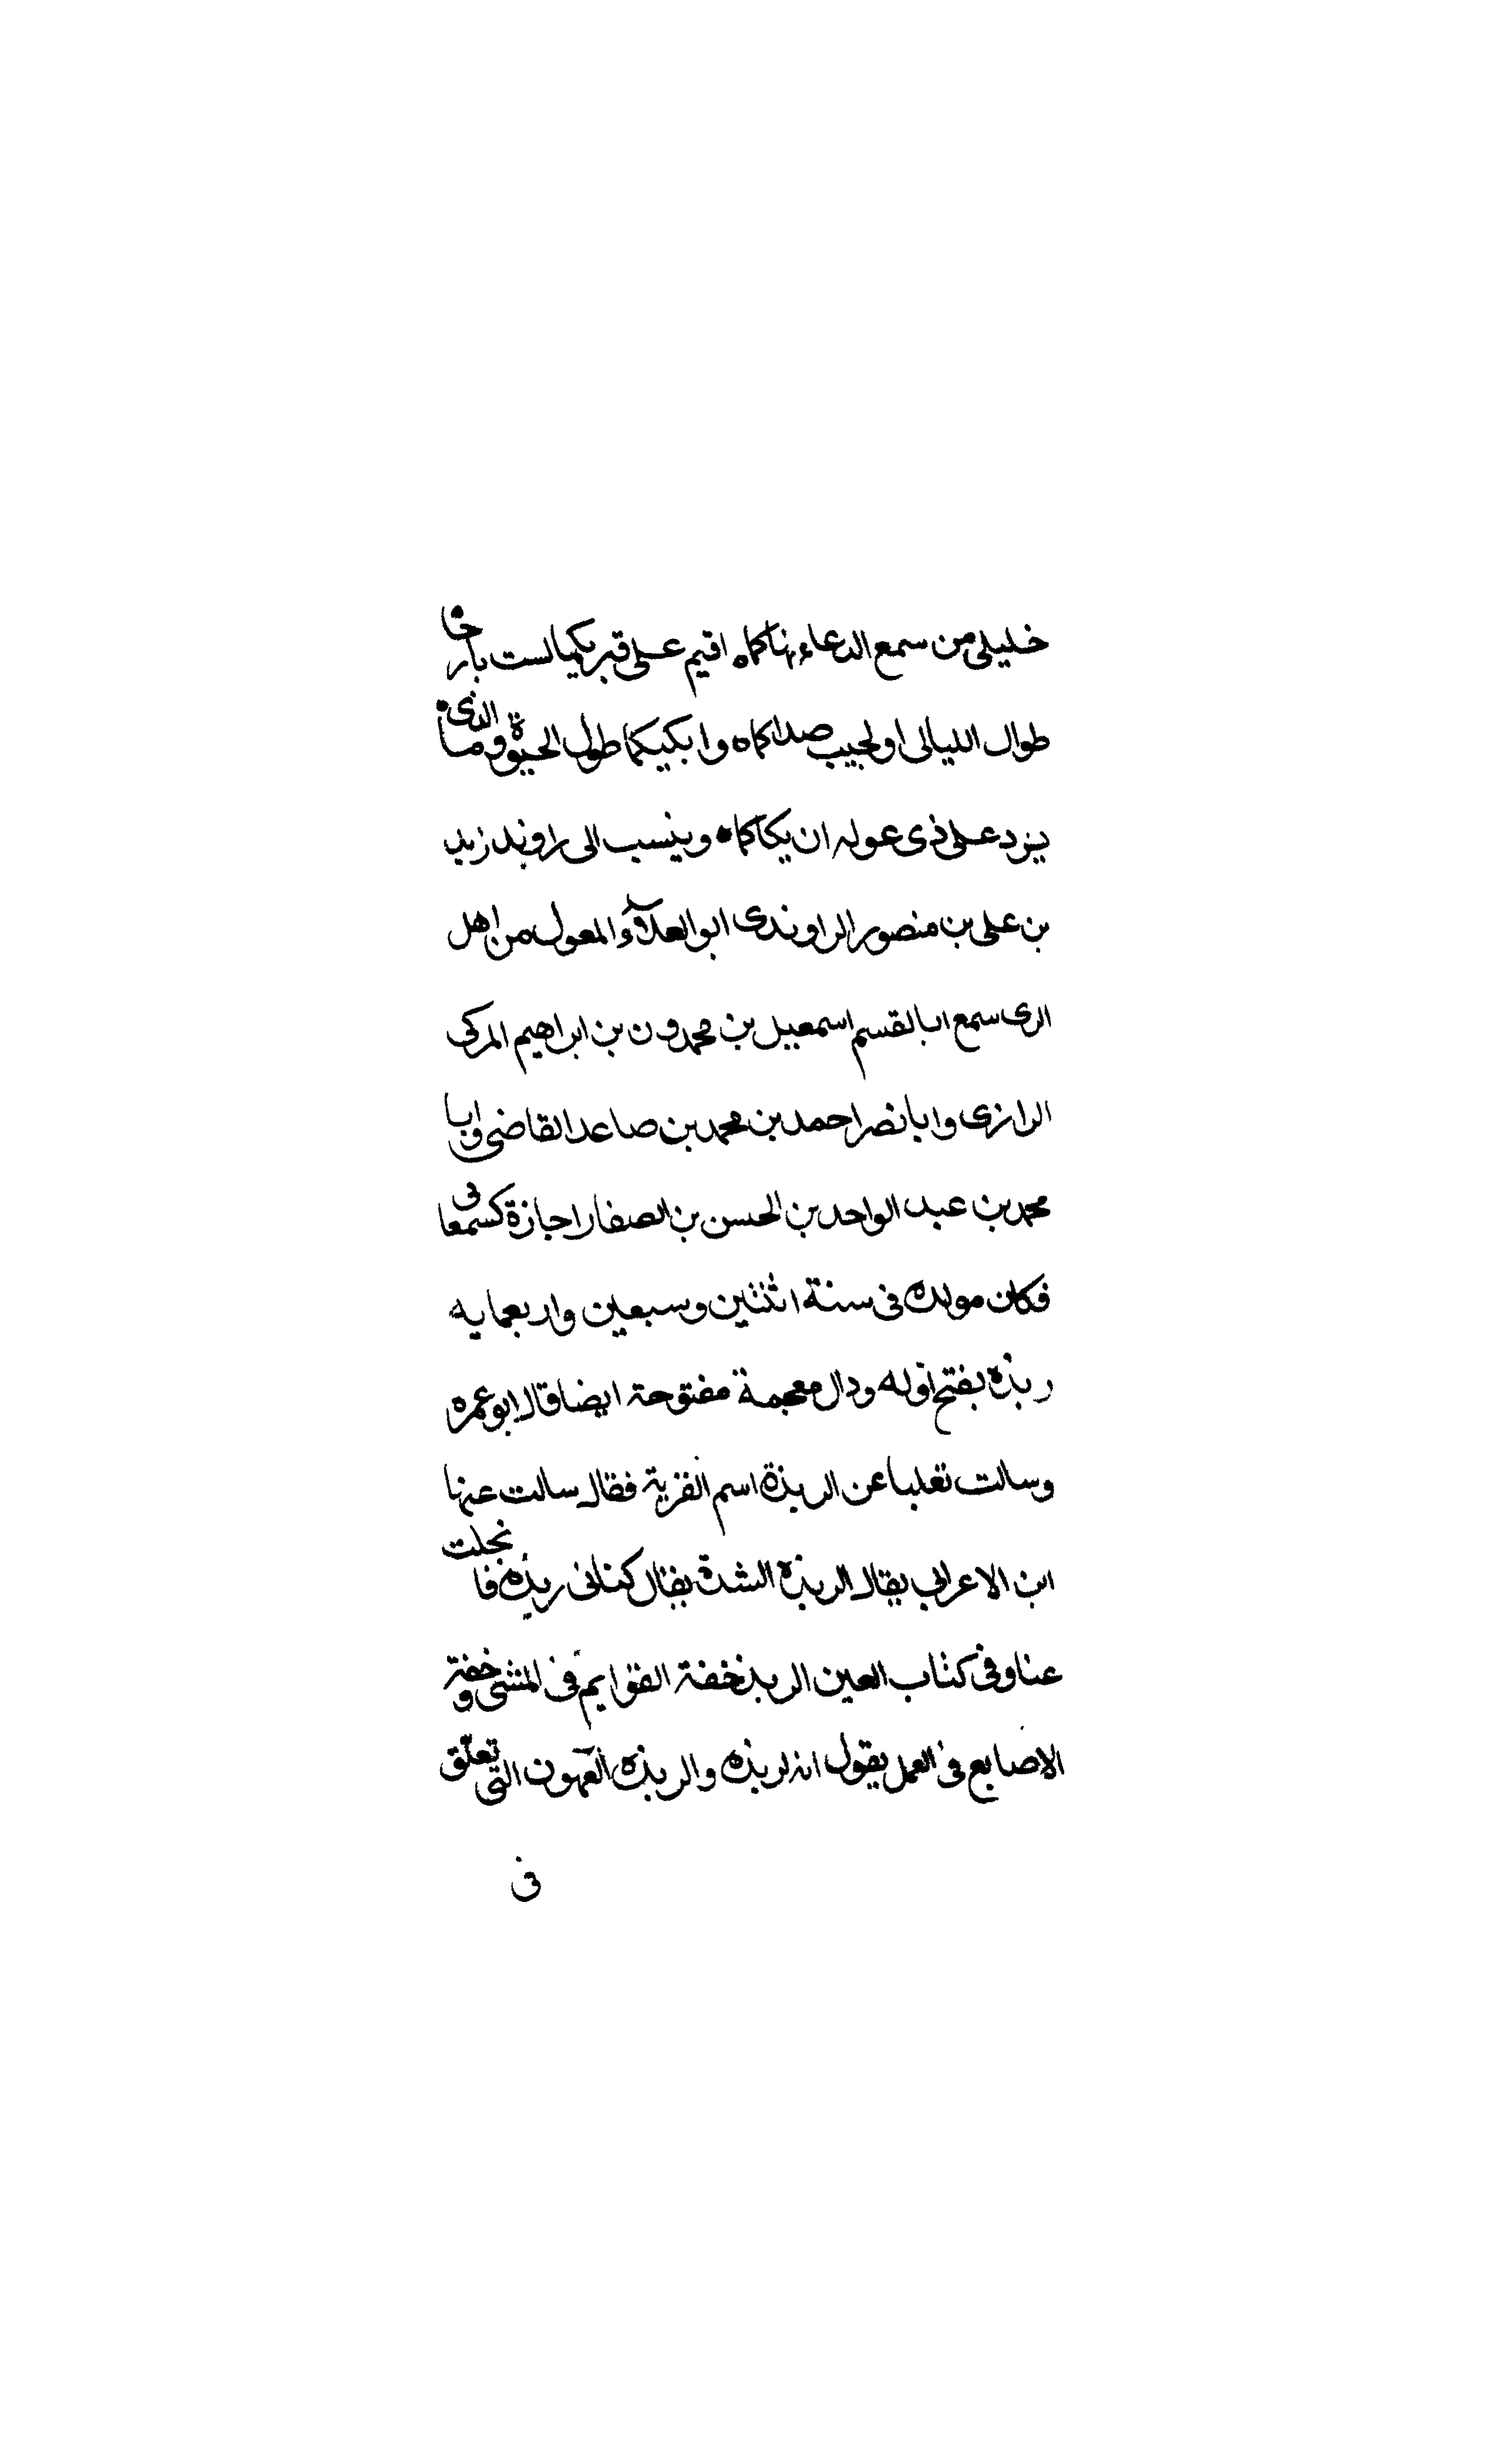 خليلى من سمع الدعاء نهاكما ه اقيم على قبريكما لست بارحا
طوال الليالى او يجيب صداكما ه وابكيكما طول الحيوة وما الذى
يرد على ذى عوله ان بكاكما ه وينسب الى راوند زيد
بن على بن منصور الراوندى ابو العلاء المعول من اهل
الرى سمع ابا القسم اسمعيل بن محمدون بن ابراهيم المركى
الرازى وابا نصر احمد بن محمد بن صاعد القاضى وابا
محمد بن عبد الواحد بن الحسن بن الصفار اجازة كسمعانى
فكان مولده فى سنة اثنتين وسبعين واربعمايه
ربذه بفتح اوله ودال معجمة مفتوحة ايضا قال ابو عمره
وسالت تغلبا عن الربذة اسم القرية فقال سالت عنها
ابن الاعرابى يقال الربذه الشدة يقال كنا فى ربذه فانجلت
عنا وفى كتاب العين الربذ خفة القوايم فى المشى وخفة
الاصابع فى العمل يقول انه لربذه والربذه العهون التى تعلق
فى